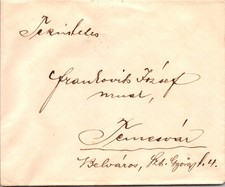 Tekintetes
Frankovits József
urnak,
Temesvár
Belváros, Szt. György t. 4.